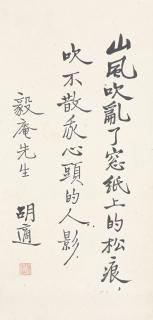 山風吹亂了窓紙上的松痕，
吹不散我心頭的人影，
毅庵先生
胡適